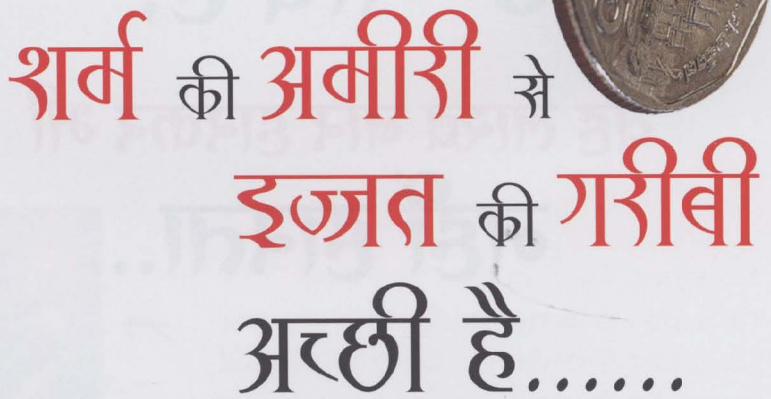 शर्म की अमीरी से
इज्जत की गरीबी
अच्छी है......